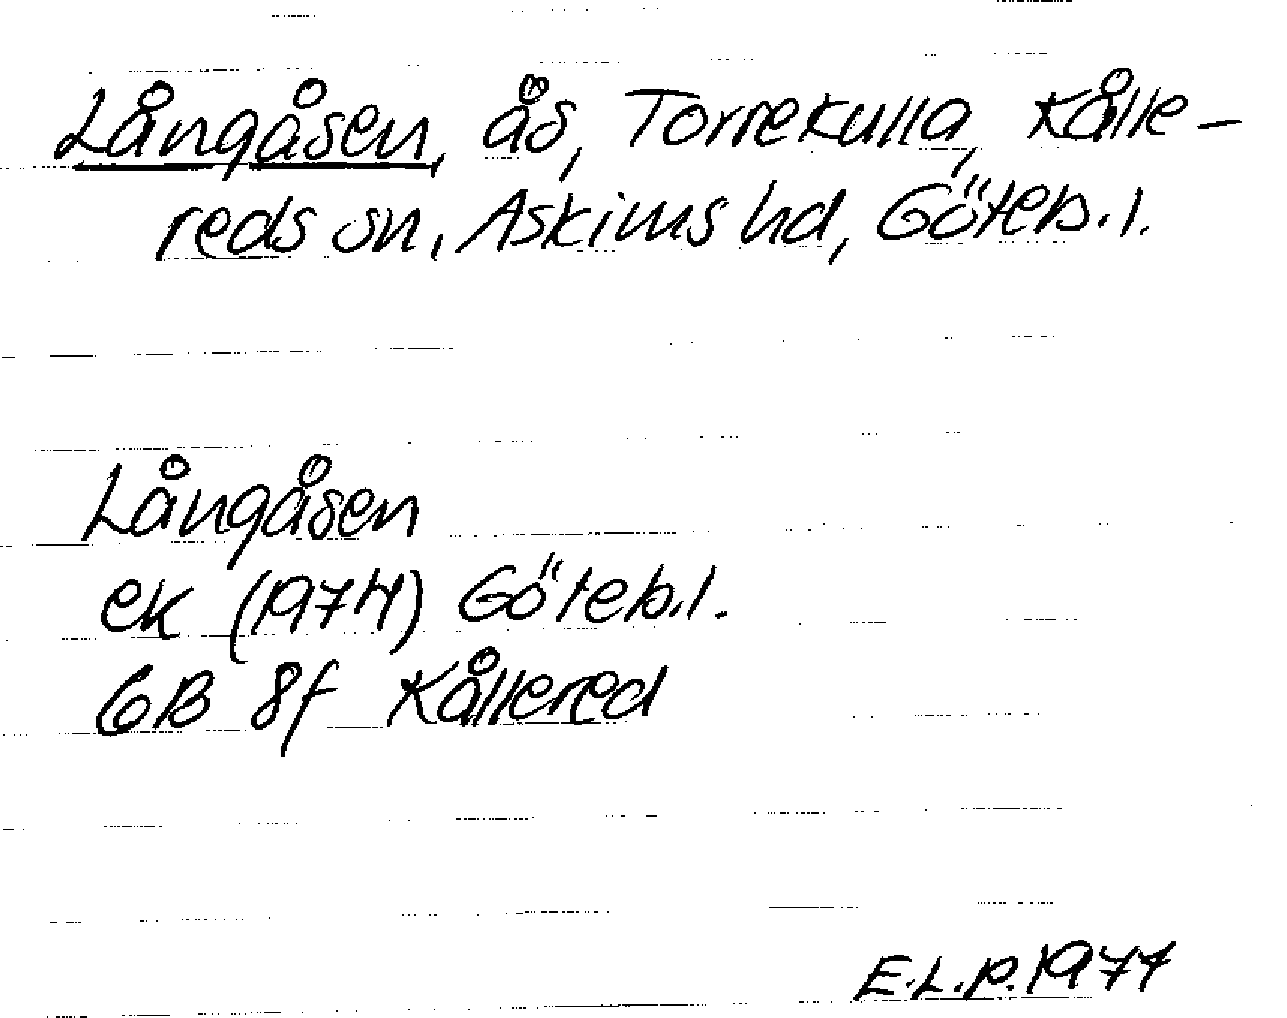 Långåsen, ås, Torrekulla, Kålle-
reds sn, Askims hd, Göteb. l.
Långåsen
ek (1974) Göteb. l.
6B 8f Kållered
E.L.P. 1977